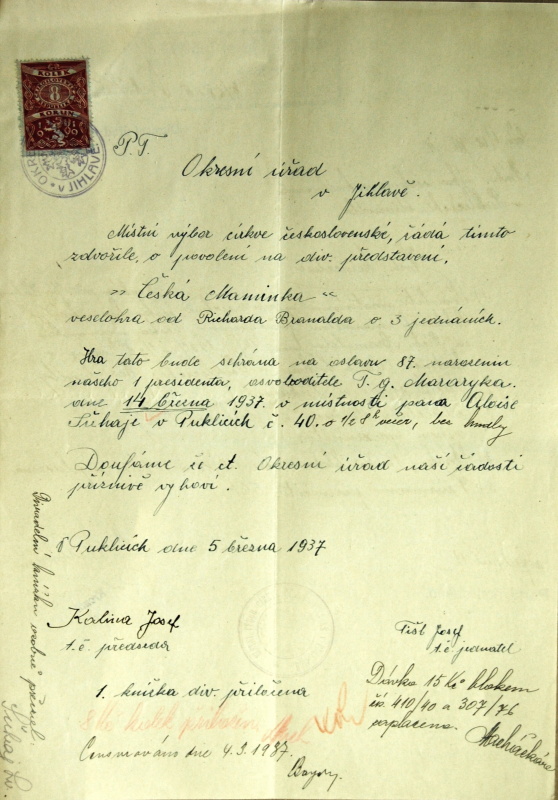 KOLEK
8
KORUN
V JIHLAVĚ
P.T.
Okresní úřad
v Jihlavě.
Místní výbor církve československé, řádá tímto
zdvořile, o povolení na div. představení.
„Česká Maminka“
veselohra od Richarda Branalda o 3 jednáních.
Hra tato bude sehrána na oslavu 87. narozenin
našeho 1 presidenta, osvoboditele T. G. Masaryka.
dne 14 března 1937. v místnosti pana Aloise
Suhaje v Puklicích č. 40. o ½ 8 h večer, bez hudby
Doufáme že ct. Okresní úřad naší žádosti
příznivě vyhoví.
V Puklicích dne 5 března 1937
Kalina Josef
t.č. předseda
Josef
t.č. jednatel
1. knížka div. přiložena
Dávka 15 Kč blokem
čís. 410/40 a 307/76
zaplacena.
8 Kč kolek
Censurováno dne 4.3.1937.
Divadelní knížku osobně převzal.
Suhaj